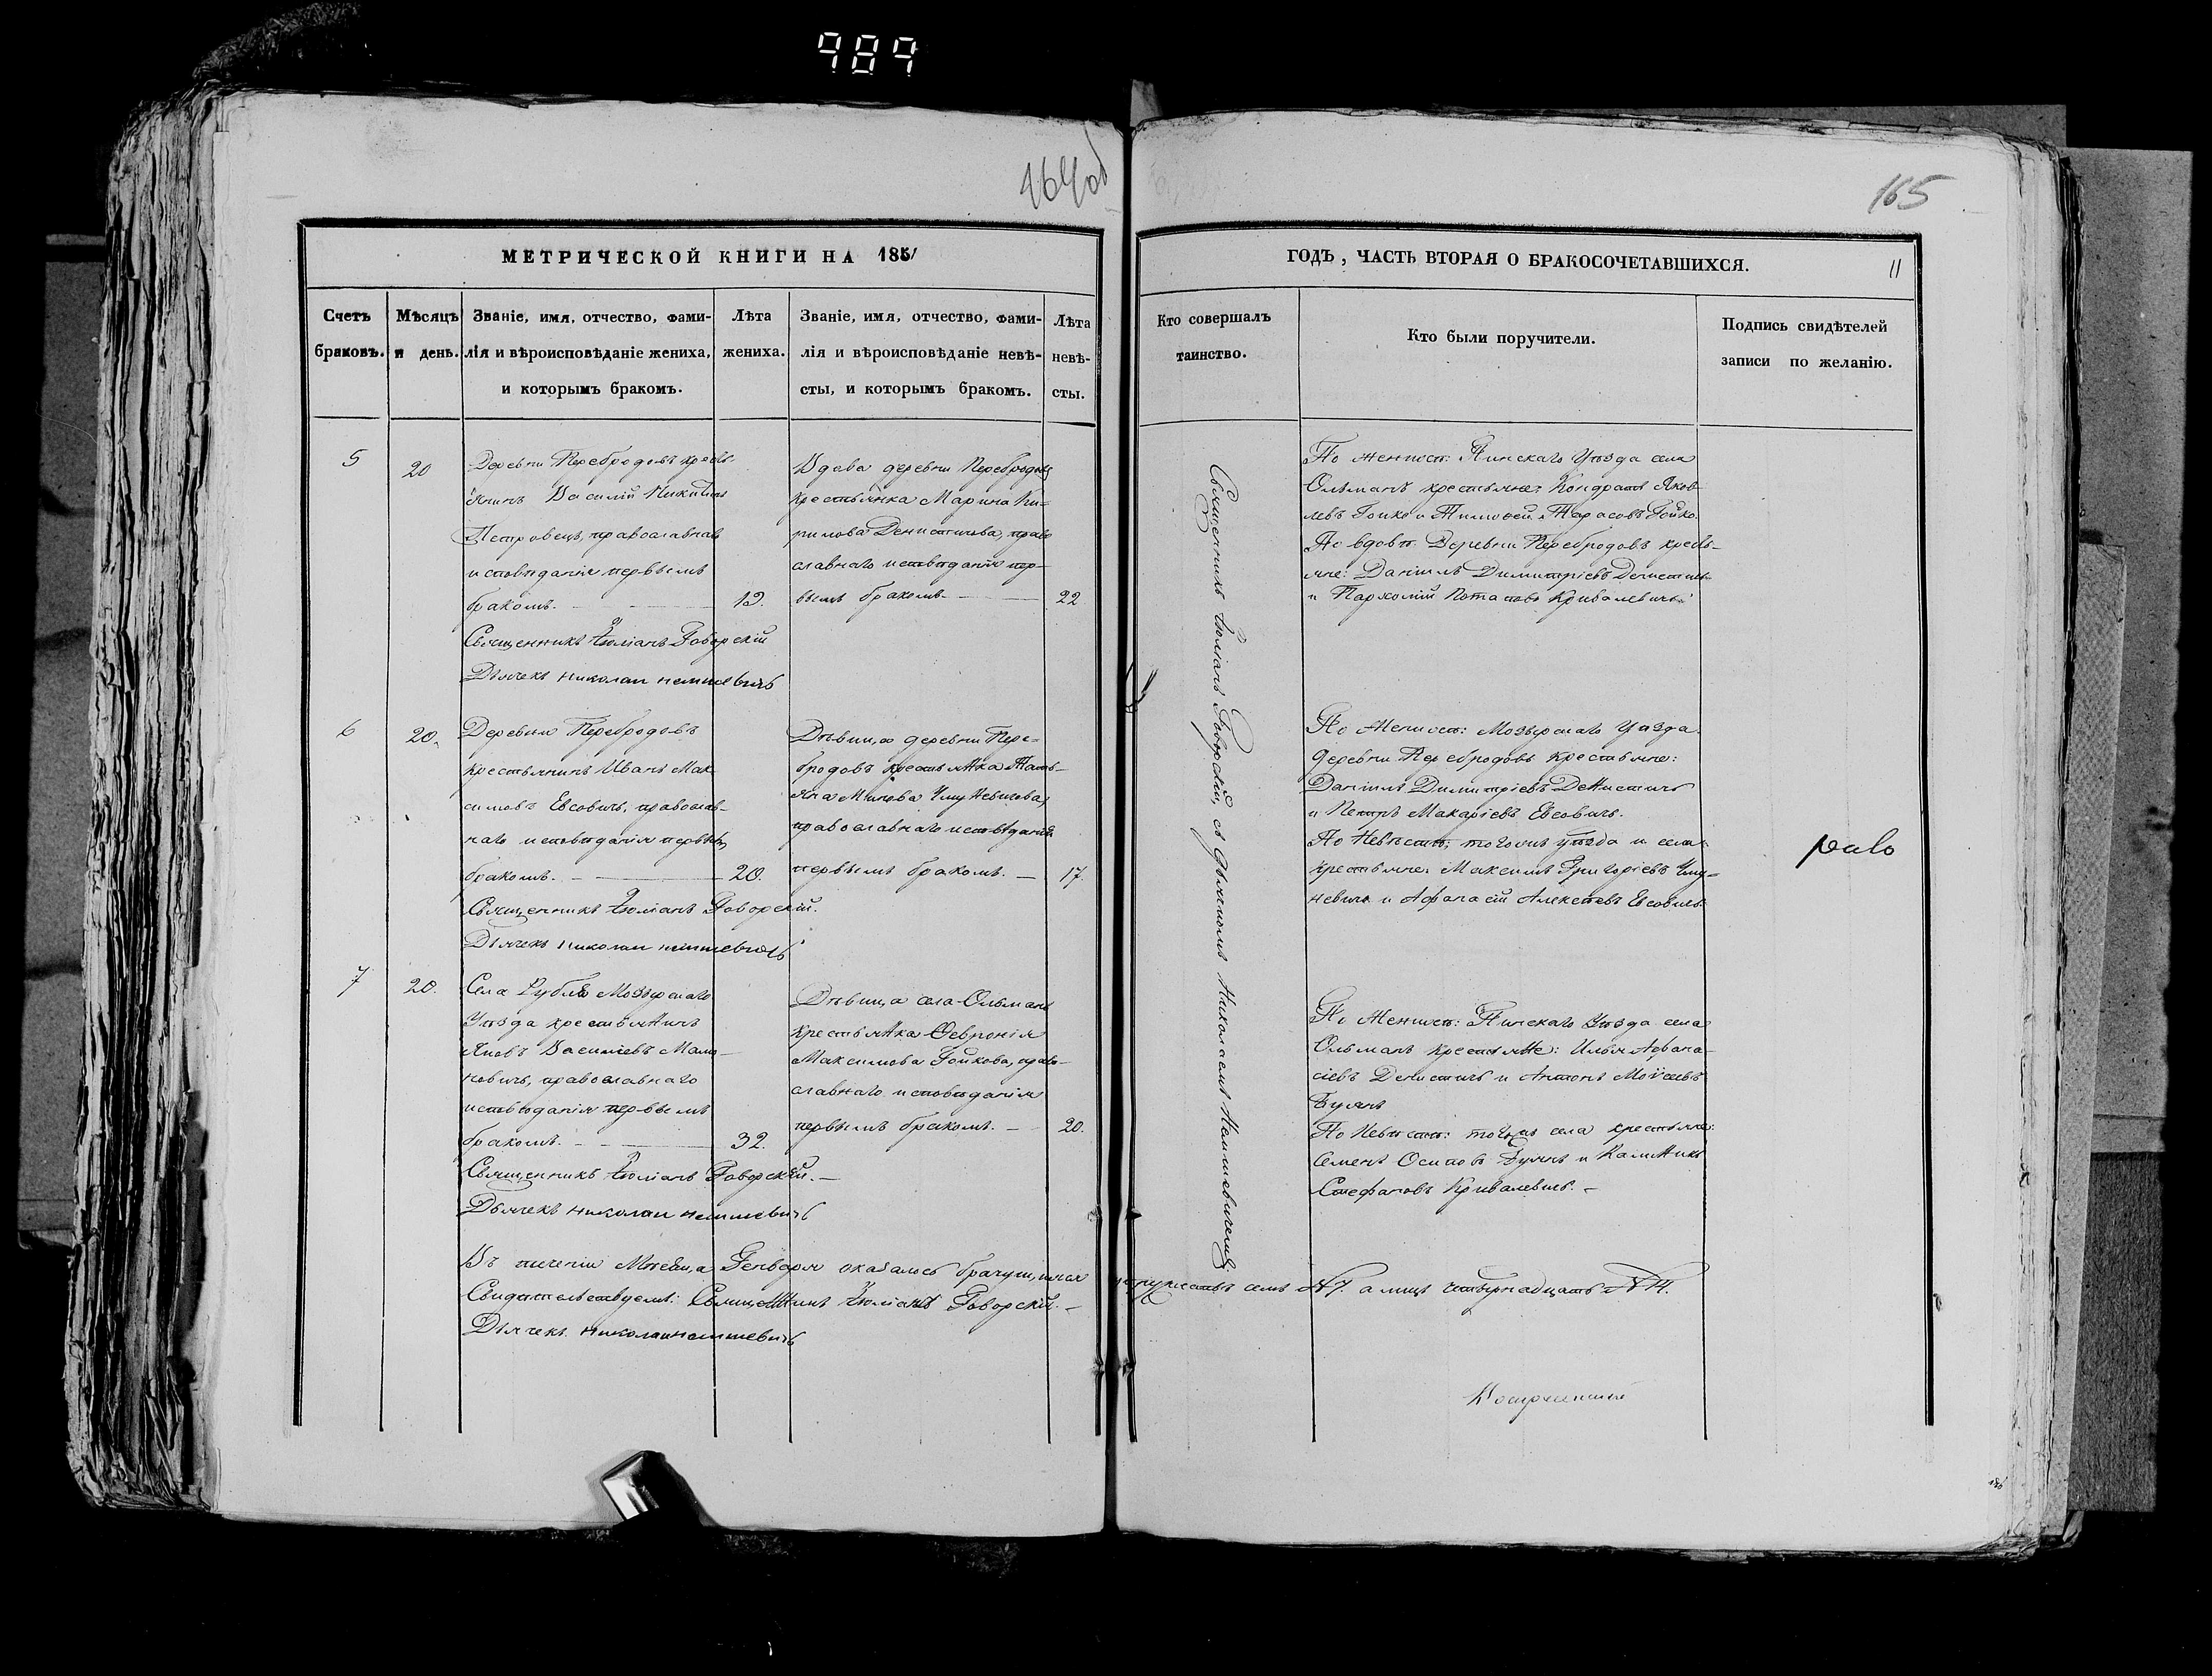 989
164об
165
МЕТРИЧЕСКОЙ КНИГИ НА 1851
ГОДЪ, ЧАСТЬ ВТОРАЯ О БРАКОСОЧЕТАВШИХСЯ.
11
Счетъ браковъ.
Мѣсяцъ и день.
Званіе, имя, отчество, фами-
лія и вѣроисповѣданіе жениха,
и которымъ бракомъ.
Лѣта жениха.
Званіе, имя, отчество, фами-
лія и вѣроисповѣданіе невѣ-
сты, и которымъ бракомъ.
Лѣта невѣ-
сты.
Кто совершалъ
таинство.
Кто были поручители.
Подпись свидѣтелей
записи по желанію.
5
20
Деревни Перебродовъ кресть-
янинъ Василій Никитинъ
Петровецъ, православнаго
исповѣданія первымъ
бракомъ. — 19.
Священникъ Іуліанъ Говорскій
Дьячекъ Николай Немшевичъ
Вдова деревни Перебродовъ
крестьянка Марина Ки-
рилова Денисчикова, право
славнаго исповѣданія пер-
вымъ бракомъ. — 22
По женихѣ: Пинскаго Уѣзда села
Ольманъ крестьяне: Кондратъ Яков-
левъ Гойко и Тимоѳей Тарасовъ Гойко.
По вдовѣ: Деревни Перебродовъ кресть-
яне: Даніилъ Димитріевъ
и Пархомій Потаповъ Кривалевичъ
Священникъ Іуліанъ Говорскій, съ Дьячкомъ Николаемъ Немшевичемъ
6
20.
Деревни Перебродовъ
крестьянинъ Иванъ Мак-
симовъ Евсовичъ, православ-
наго исповѣданія первымъ
бракомъ. — 20.
Священникъ Іуліанъ Говорскій.
Дьячекъ Николай Немшевичъ
Дѣвица деревни Пере-
бродовъ крестьянка Тать-
яна Минова
православнаго исповѣданія
первымъ бракомъ. — 17.
По Женихѣ: Мозырскаго Уѣзда
деревни Перебродовъ крестьяне:
Даніилъ Димитріевъ
и Петръ Макаріевъ Евсовичъ.
По Невѣстѣ: тогожъ уѣзда и села
крестьяне: Максимъ Григоріевъ
и Афанасій Алексѣевъ Евсовичъ
7
20.
Села Рубля Мозырскаго
Уѣзда крестьянинъ
Яковъ Василіевъ Мама-
новичъ, православнаго
исповѣданія первымъ
бракомъ. — 32.
Священникъ Іуліанъ Говорскій. —
Дьячекъ Николай Немшевичъ
Дѣвица села Ольманъ
крестьянка Ѳевронія
Максимова Гойкова, право-
славнаго исповѣданія
первымъ бракомъ. — 20.
По Женихѣ: Пинскаго Уѣзда села
Ольманъ крестьяне: Илья Афана-
сіевъ и Антонъ Моѵсеевъ
Буянъ
По Невѣстѣ: тогожъ села крестьяне:
Семенъ Осиповъ Буянъ и Калиникъ
Стефановъ Кривалевичъ. —
Въ теченіи Мѣсяца Генваря оказалось брачущихся супружествъ семь №7. а лицъ четырнадцать №14.
Свидѣтельствуемъ: Священникъ Іуліанъ Говорскій. —
Дьячекъ Николай Немшевичъ